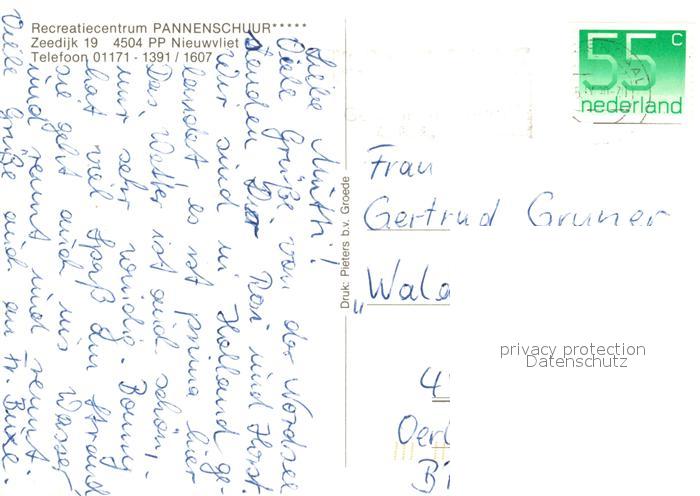 Recreatiecentrum PANNENSCHUUR*****
Zeedijk 19 4504 PP Nieuwvliet
Telefoon 01171 - 1391 / 1607
Liebe Mutti!
Viele Grüße von der Nordsee
senden Dir Rosi und Horst.
Wir sind in Holland ge-
landet es ist prima hier
Das Wetter ist auch schön,
nur sehr windig. Bonny
hat viel Spaß am Strand
sie geht auch ins Wasser
und rennt und rennt.
Viele Grüße auch an Fr.
Druk: Pieters b.v. Groede
55 c
nederland
Frau
Gertrud Gruner
"Wald
4
Oer
privacy protection
Datenschutz